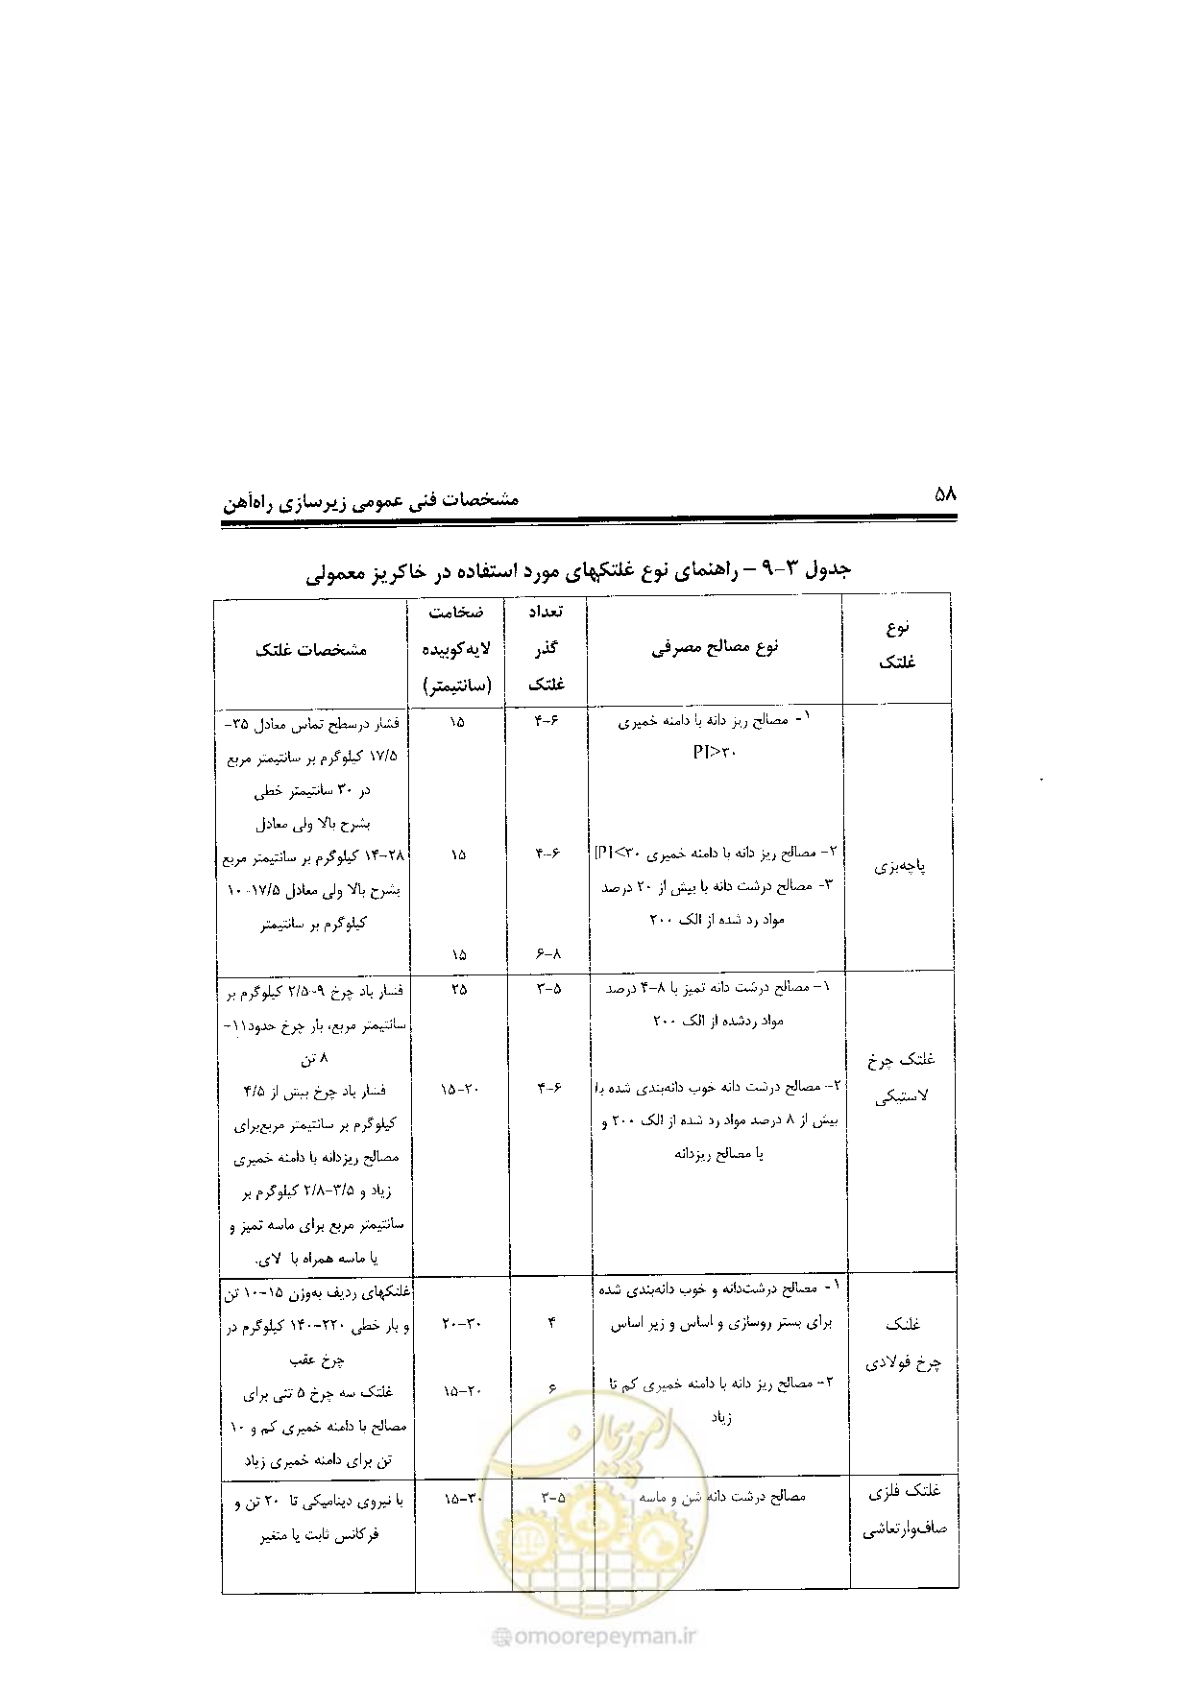 ۵۸
مشخصات فنی عمومی زیرسازی راه‌آهن
جدول ۳-۹ – راهنمای نوع غلتکهای مورد استفاده در خاکریز معمولی
نوع
غلتک
نوع مصالح مصرفی
تعداد
گذر
غلتک
ضخامت
لایه‌کوبیده
(سانتیمتر)
مشخصات غلتک
پاچه‌بزی
۱- مصالح ریز دانه با دامنه خمیری
PI>۳۰
۴-۶
۱۵
فشار درسطح تماس معادل ۳۵-
۱۷/۵ کیلوگرم بر سانتیمتر مربع
در ۳۰ سانتیمتر خطی
۲- مصالح ریز دانه با دامنه خمیری PI<۳۰
۴-۶
۱۵
بشرح بالا ولی معادل
۱۴-۲۸ کیلوگرم بر سانتیمتر مربع
۳- مصالح درشت دانه با بیش از ۲۰ درصد
مواد رد شده از الک ۲۰۰
۶-۸
۱۵
بشرح بالا ولی معادل ۱۷/۵-۱۰
کیلوگرم بر سانتیمتر
غلتک چرخ
لاستیکی
۱- مصالح درشت دانه تمیز با ۸-۴ درصد
مواد ردشده از الک ۲۰۰
۳-۵
۲۵
فشار باد چرخ ۹-۲/۵ کیلوگرم بر
سانتیمتر مربع، بار چرخ حدود۱۱-
۸ تن
۲- مصالح درشت دانه خوب دانه‌بندی شده با
بیش از ۸ درصد مواد رد شده از الک ۲۰۰ و
یا مصالح ریزدانه
۴-۶
۱۵-۲۰
فشار باد چرخ بیش از ۴/۵
کیلوگرم بر سانتیمتر مربع‌برای
مصالح ریزدانه با دامنه خمیری
زیاد و ۳/۵-۲/۸ کیلوگرم بر
سانتیمتر مربع برای ماسه تمیز و
یا ماسه همراه با لای.
غلتک
چرخ فولادی
۱- مصالح درشت‌دانه و خوب دانه‌بندی شده
برای بستر روسازی و اساس و زیر اساس
۴
۲۰-۳۰
غلتکهای ردیف به‌وزن ۱۵-۱۰ تن
و بار خطی ۲۲۰-۱۴۰ کیلوگرم در
چرخ عقب
۲- مصالح ریز دانه با دامنه خمیری کم تا
زیاد
۶
۱۵-۲۰
غلتک سه چرخ ۵ تنی برای
مصالح با دامنه خمیری کم و ۱۰
تن برای دامنه خمیری زیاد
غلتک فلزی
صاف‌وارتعاشی
مصالح درشت دانه شن و ماسه
۳-۵
۱۵-۳۰
با نیروی دینامیکی تا ۲۰ تن و
فرکانس ثابت یا متغیر
امور پیمان
@omoorepeyman.ir